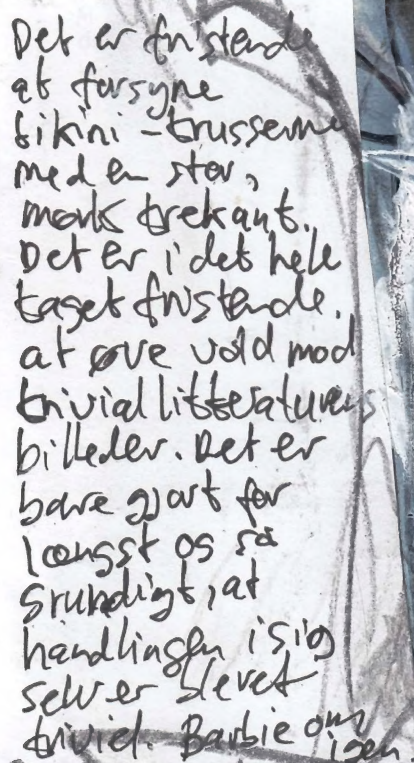 Det er fristende
at forsyne
bikini-trusserne
med en stor,
mørk trekant.
Det er i det hele
taget fristende.
at øve vold mod
triviallitteraturens
billeder. Det er
bare gjort for
længst og så
grundigt, at
handlingen i sig
selv er blevet
triviel. Barbie om
igen